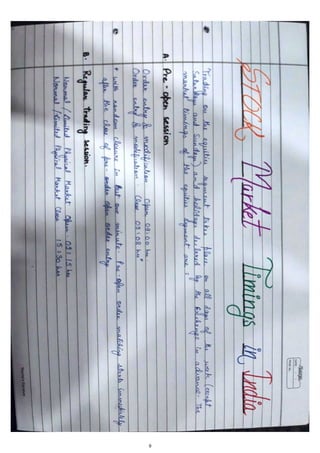 STOCK Market Timings in India
Trading on the equities segment takes place on all days of the week (except
Saturdays and Sundays) and holidays declared by the Exchange in advance. The
market timings of the equities segment are :
A. Pre - open session
Order entry & modification Open 09:00 hrs
Order entry & modification Close 09:08 hrs*
* with random closure in last one minute. Pre-open order matching starts immediately
after the close of pre order open order entry
B. Regular trading session.
Normal / Limited Physical Market Open : 09:15 hrs
Normal / Limited Physical Market Close : 15:30 hrs
9